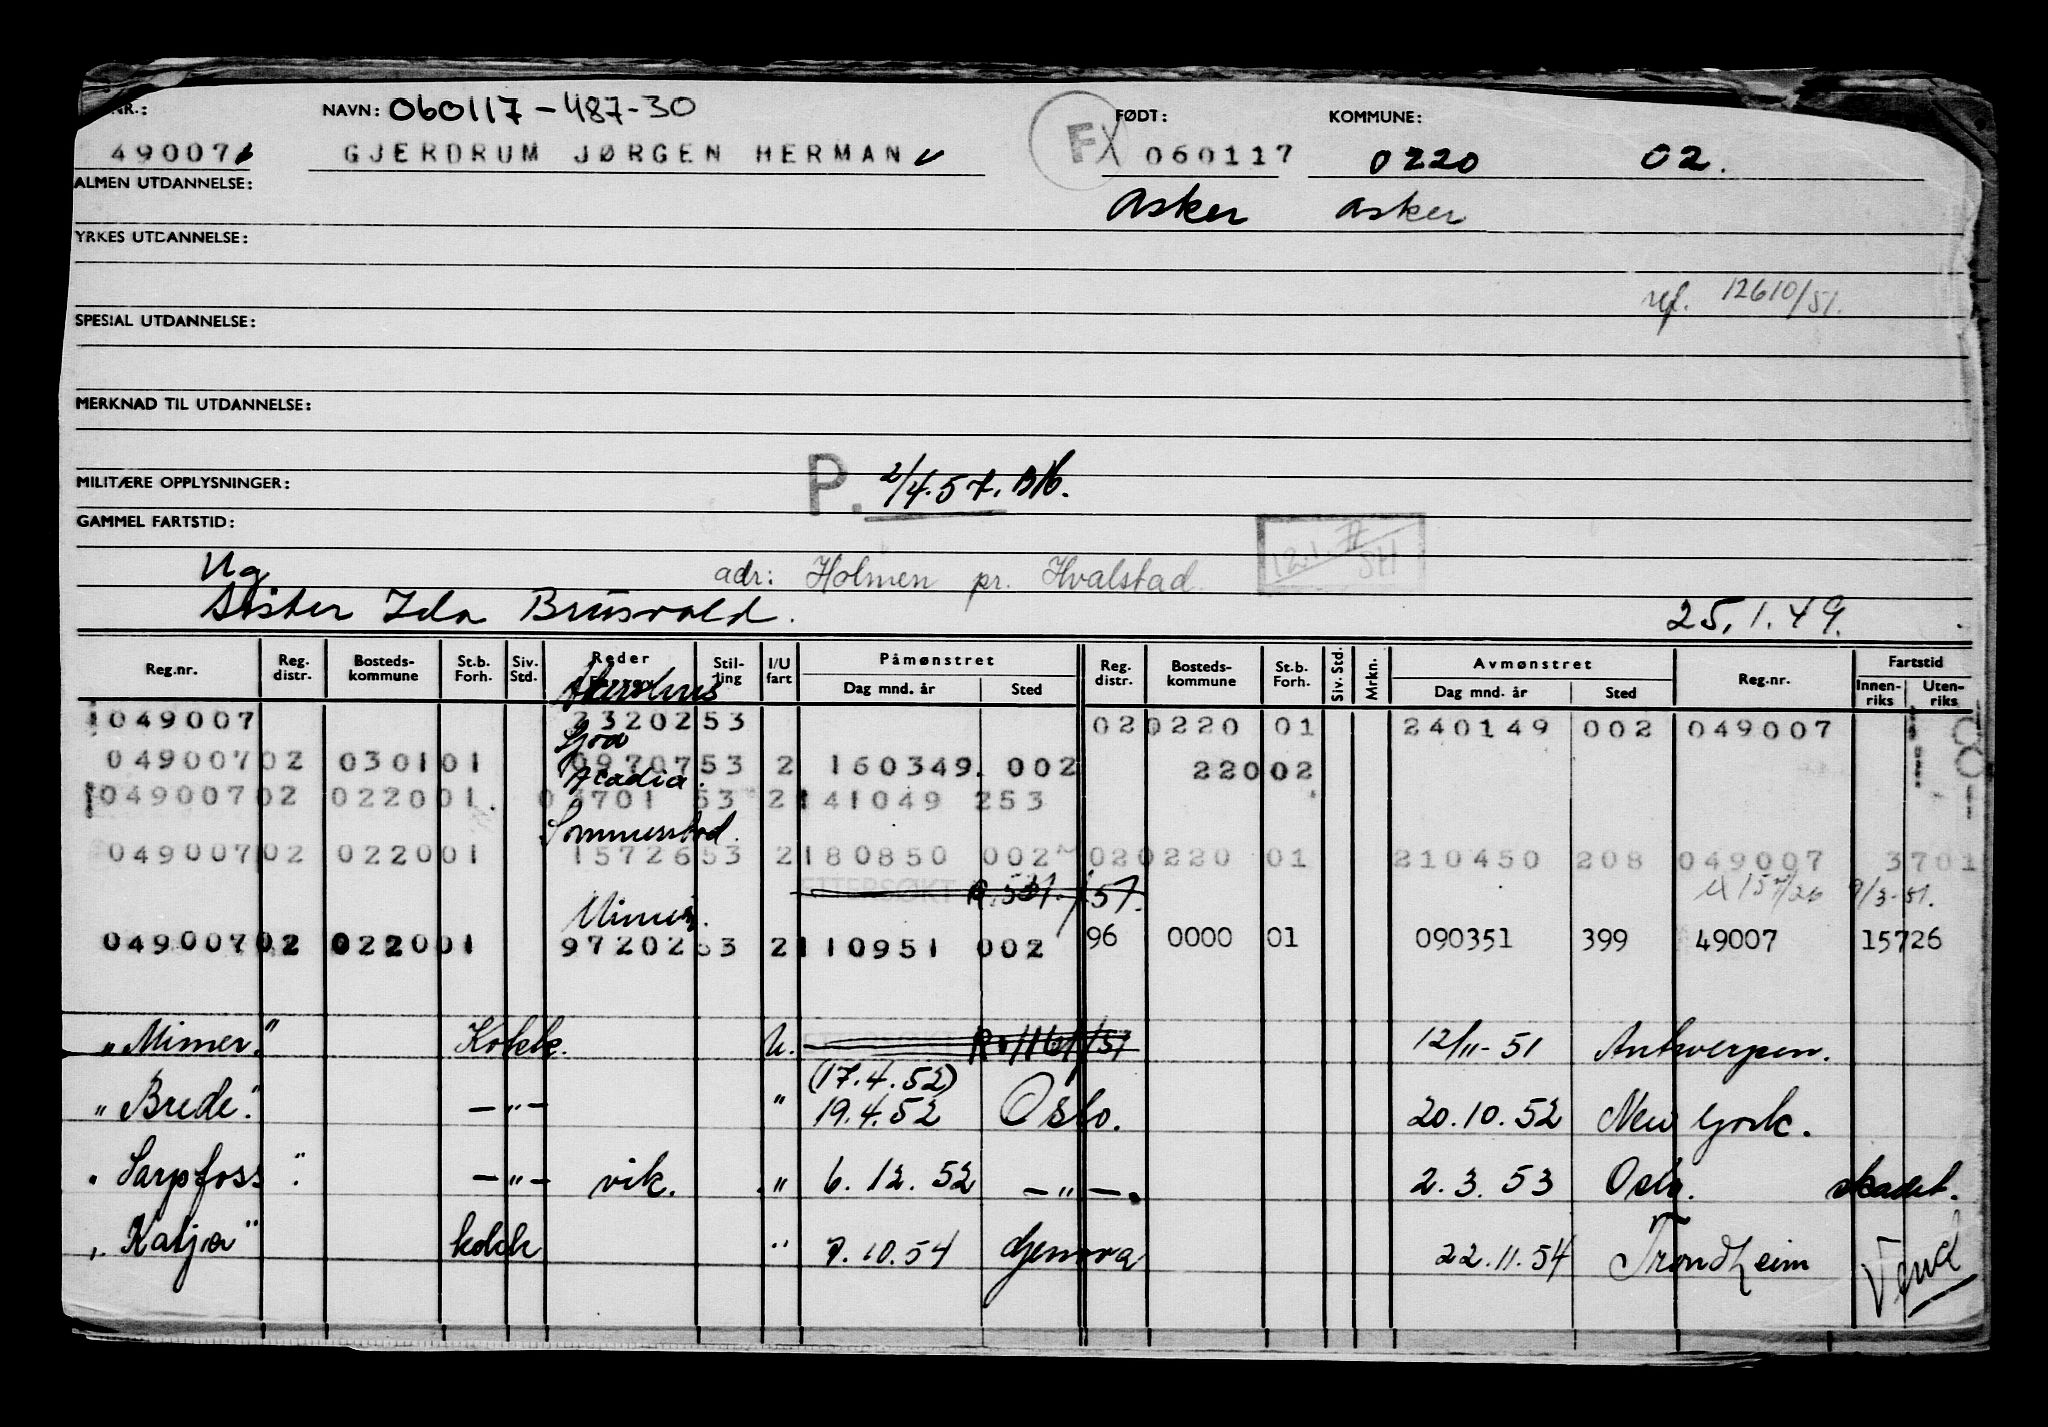 NR.: NAVN: 060117-487-30 FØDT: KOMMUNE:
49007 GJERDRUM JØRGEN HERMAN F 060117 0220 02.
ALMEN UTDANNELSE: Asker Asker
YRKES UTDANNELSE:
ref. 12610/51.
SPESIAL UTDANNELSE:
MERKNAD TIL UTDANNELSE:
MILITÆRE OPPLYSNINGER: P. 2/4.57.
GAMMEL FARTSTID:
Ug adr: Holmen pr. Hvalstad
Søster Ida Brusvold. 25.1.49.
Reg.nr. Reg. distr. Bosteds- kommune St.b. Forh. Siv. Std. Reder Stil- ling I/U fart Påmønstret Dag mnd. år Sted Reg. distr. Bosteds- kommune St.b. Forh. Siv. Std. Mrkn. Avmønstret Dag mnd. år Sted Reg.nr. Fartstid Innen- riks Uten- riks
Akershus
049007 2320253 020220 01 240149 002 049007
04900702 030101 0970753 2 160349. 002 22002
Acadia.
04900702 022001. 03701 53 2 141049 253
Sommerstad.
04900702 022001 1572653 2 180850 002 020220 01 210450 208 049007 3701
ETTERSØKT 9/3-51.
Mimer.
04900702 022001 9720253 2 110951 002 96 0000 01 090351 399 49007 15726
"Mimer." Kokk. U. 12/11-51 Antwerpen.
(17.4.52)
"Brede". —"— " 19.4.52 Oslo. 20.10.52 New York.
"Sarpfoss". —"— vik. " 6.12.52 —"—. 2.3.53 Oslo. skadet.
"Katja" kokk " 7.10.54 Genova 22.11.54 Trondheim